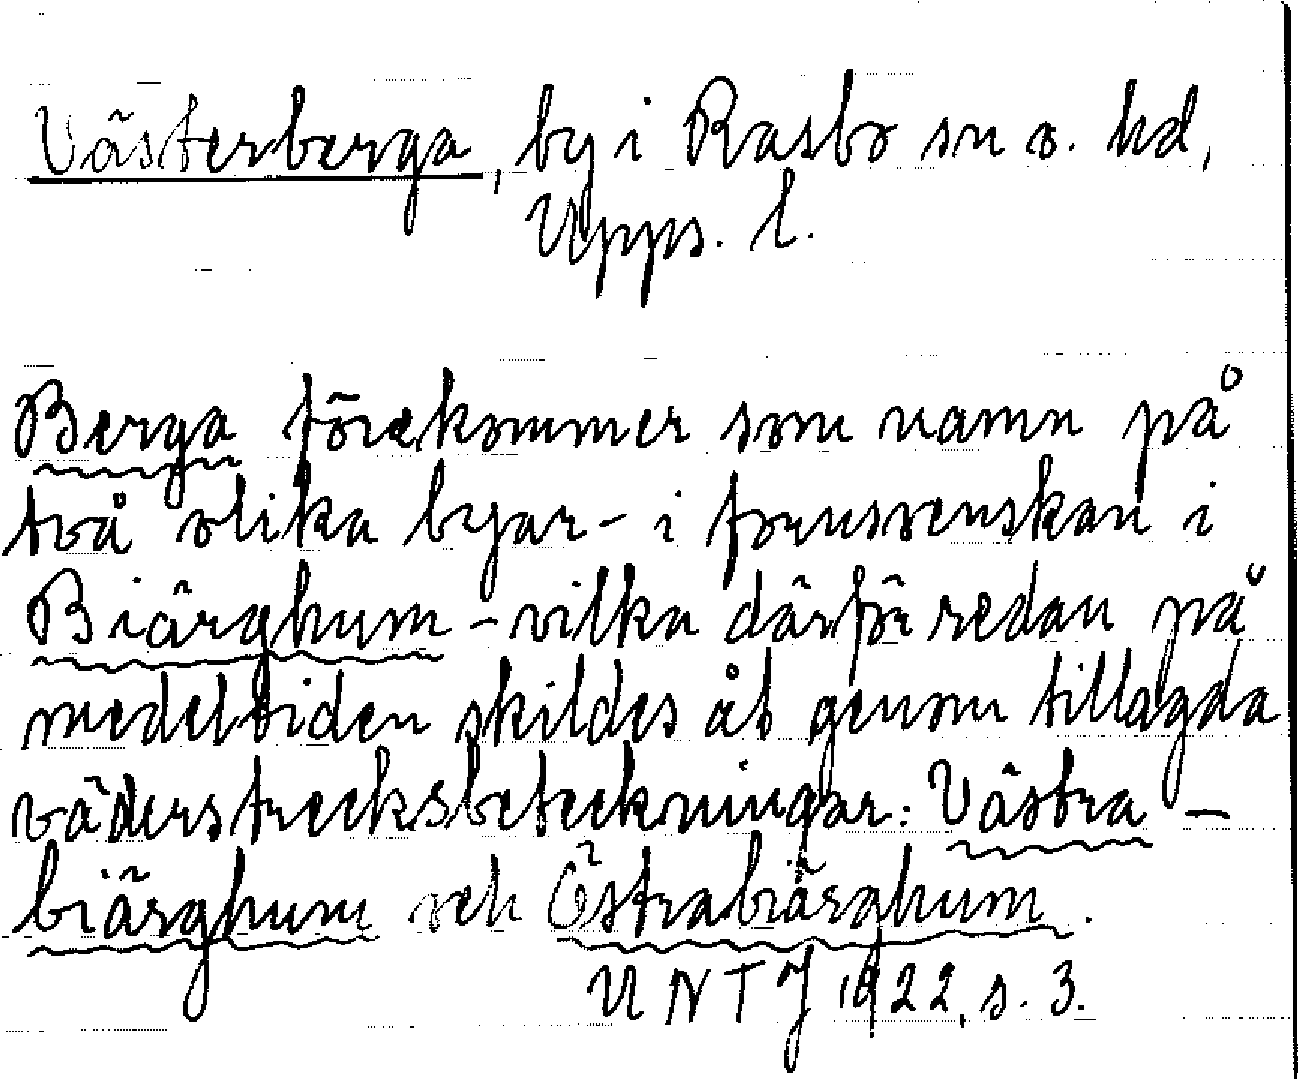 Västerberga, by i Rasbo sn o. hd,
Upps. l.
Berga förekommer som namn på
två olika byar – i fornsvenskan i
Biärghum – vilka därför redan på
medeltiden skildes åt genom tillagda
väderstrecksbeteckningar: Västra –
biärghum och Östrabiärghum.
UNTJ 1922, s. 3.